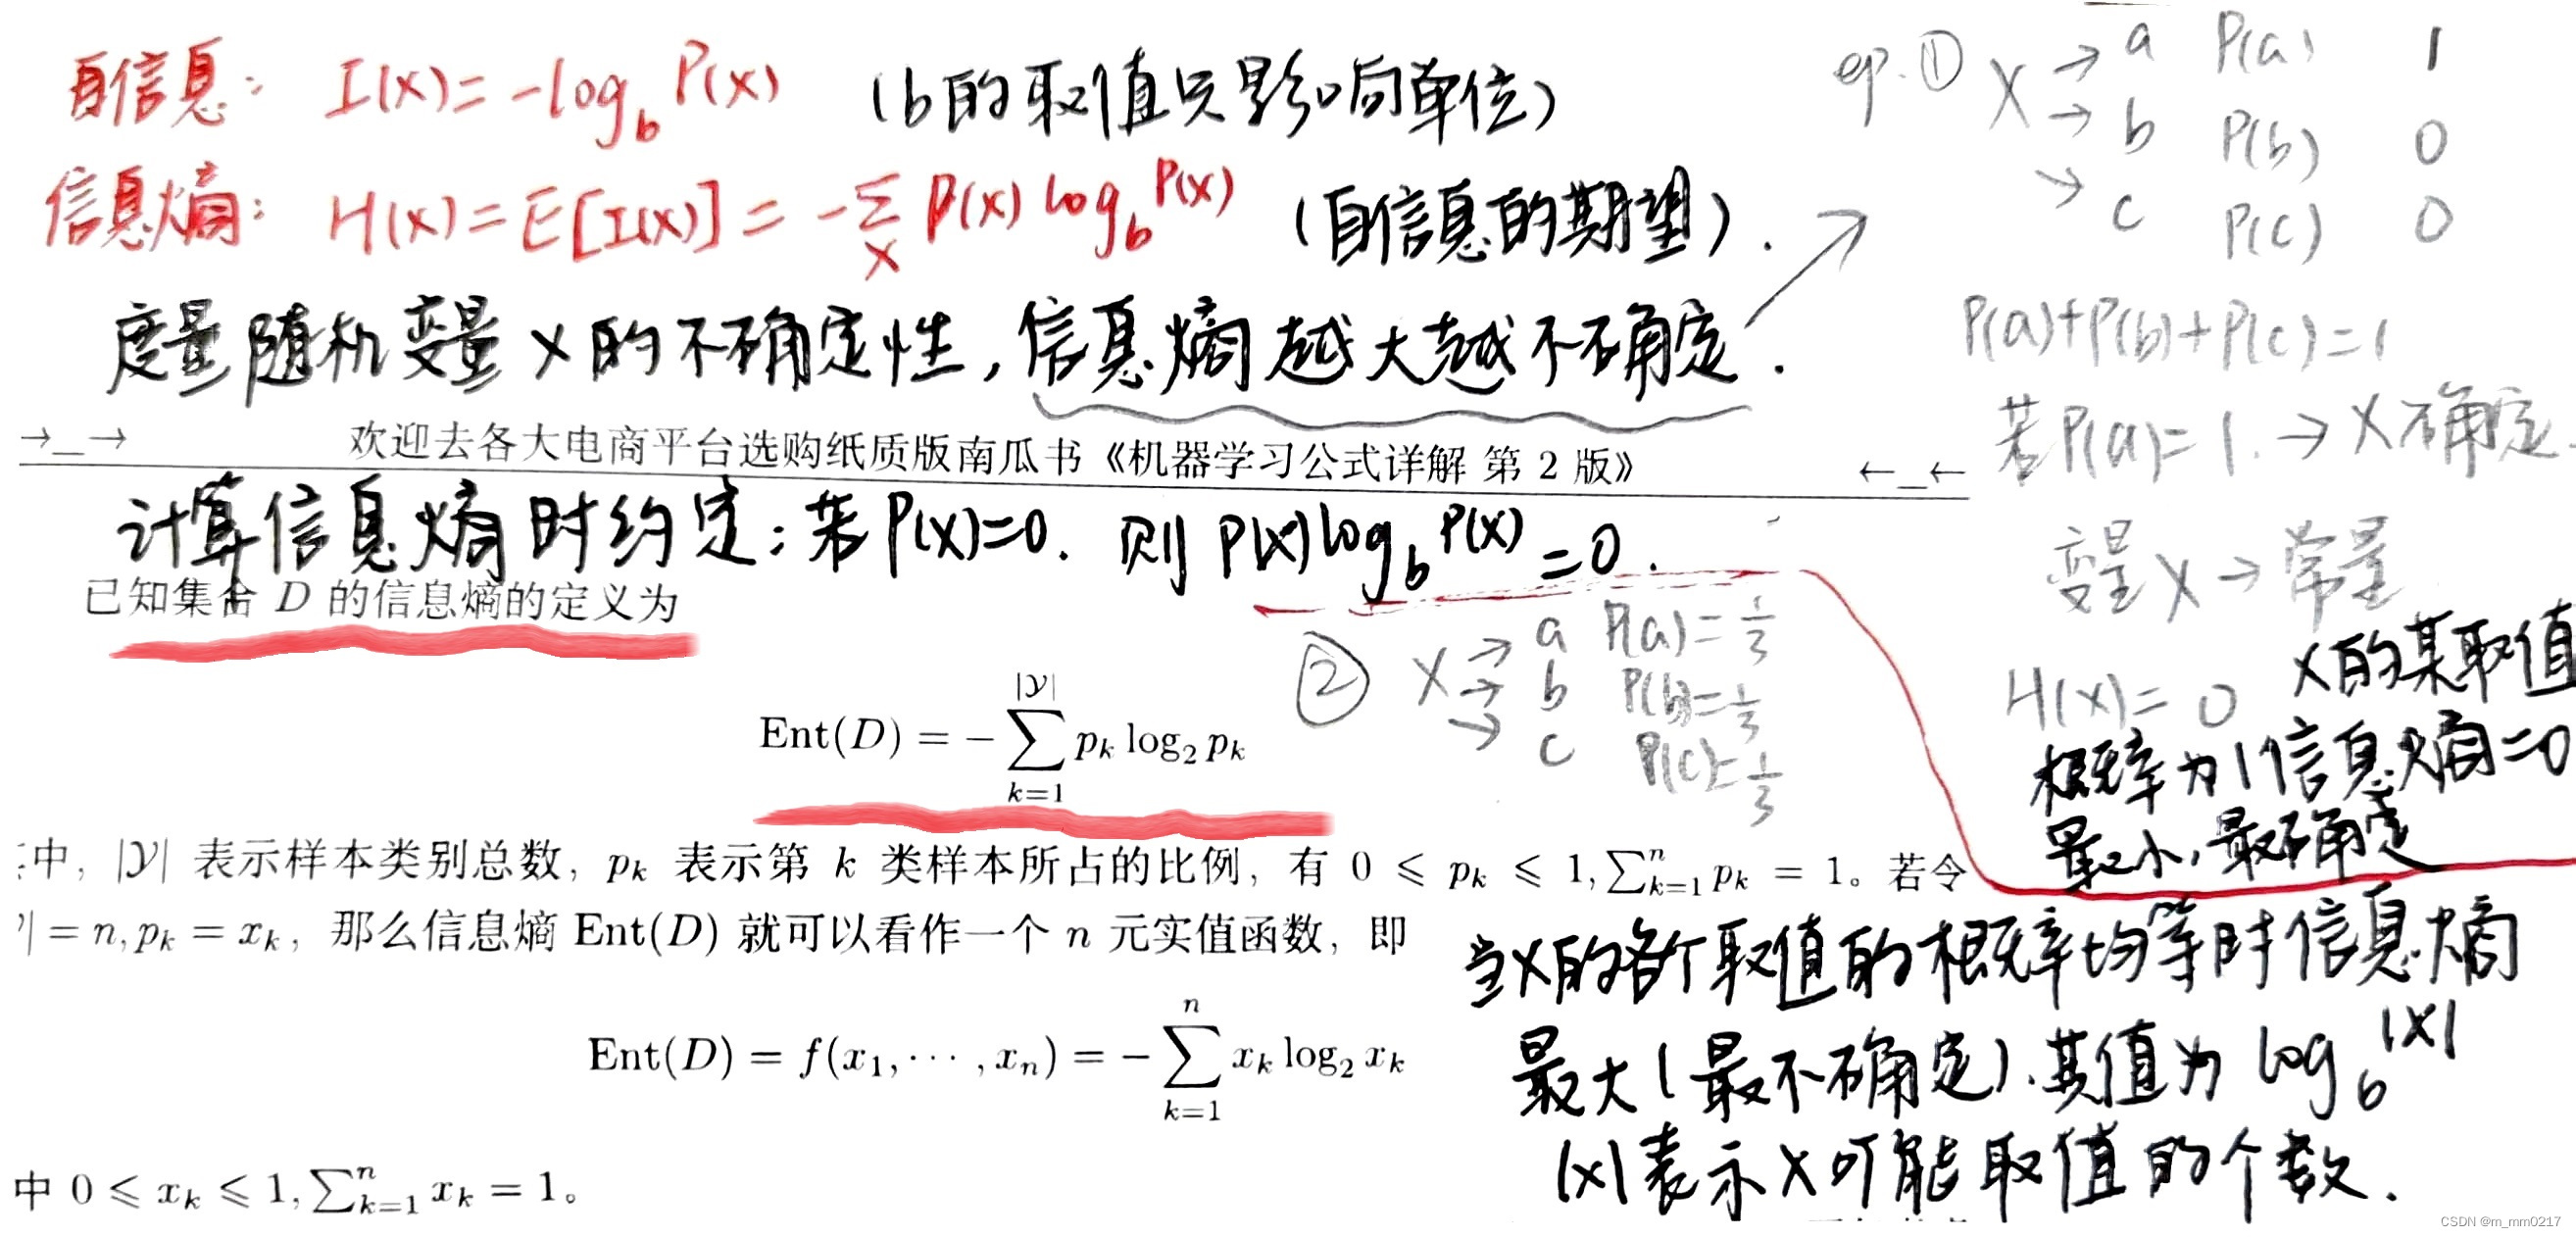 自信息: I(X)=-log_b P(X) (b的取值只影响单位)
信息熵: H(X)=E[I(X)]=-∑_X P(X)log_b P(X) (自信息的期望).
度量随机变量X的不确定性,信息熵越大越不确定.
eg.① X → a P(a) 1
→ b P(b) 0
→ c P(c) 0
P(a)+P(b)+P(c)=1
若P(a)=1.→X确定.
变量X→常量
H(X)=0
X的某取值
概率为1信息熵=0
最小,最确定
→_→ 欢迎去各大电商平台选购纸质版南瓜书《机器学习公式详解 第 2 版》 ←_←
计算信息熵时约定:若P(X)=0. 则P(X)log_b P(X)=0.
已知集合 D 的信息熵的定义为
② X → a P(a)=1/3
→ b P(b)=1/3
→ c P(c)=1/3
Ent(D) = -∑_{k=1}^{|𝒴|} p_k log_2 p_k
中，|𝒴| 表示样本类别总数，p_k 表示第 k 类样本所占的比例，有 0 ⩽ p_k ⩽ 1,∑_{k=1}^{n} p_k = 1。若令
| = n, p_k = x_k，那么信息熵 Ent(D) 就可以看作一个 n 元实值函数，即
Ent(D) = f(x_1, ⋯ , x_n) = -∑_{k=1}^{n} x_k log_2 x_k
中 0 ⩽ x_k ⩽ 1,∑_{k=1}^{n} x_k = 1。
当X的各个取值的概率均等时信息熵
最大(最不确定).其值为log_b |X|
|X|表示X可能取值的个数.
CSDN @m_mm0217